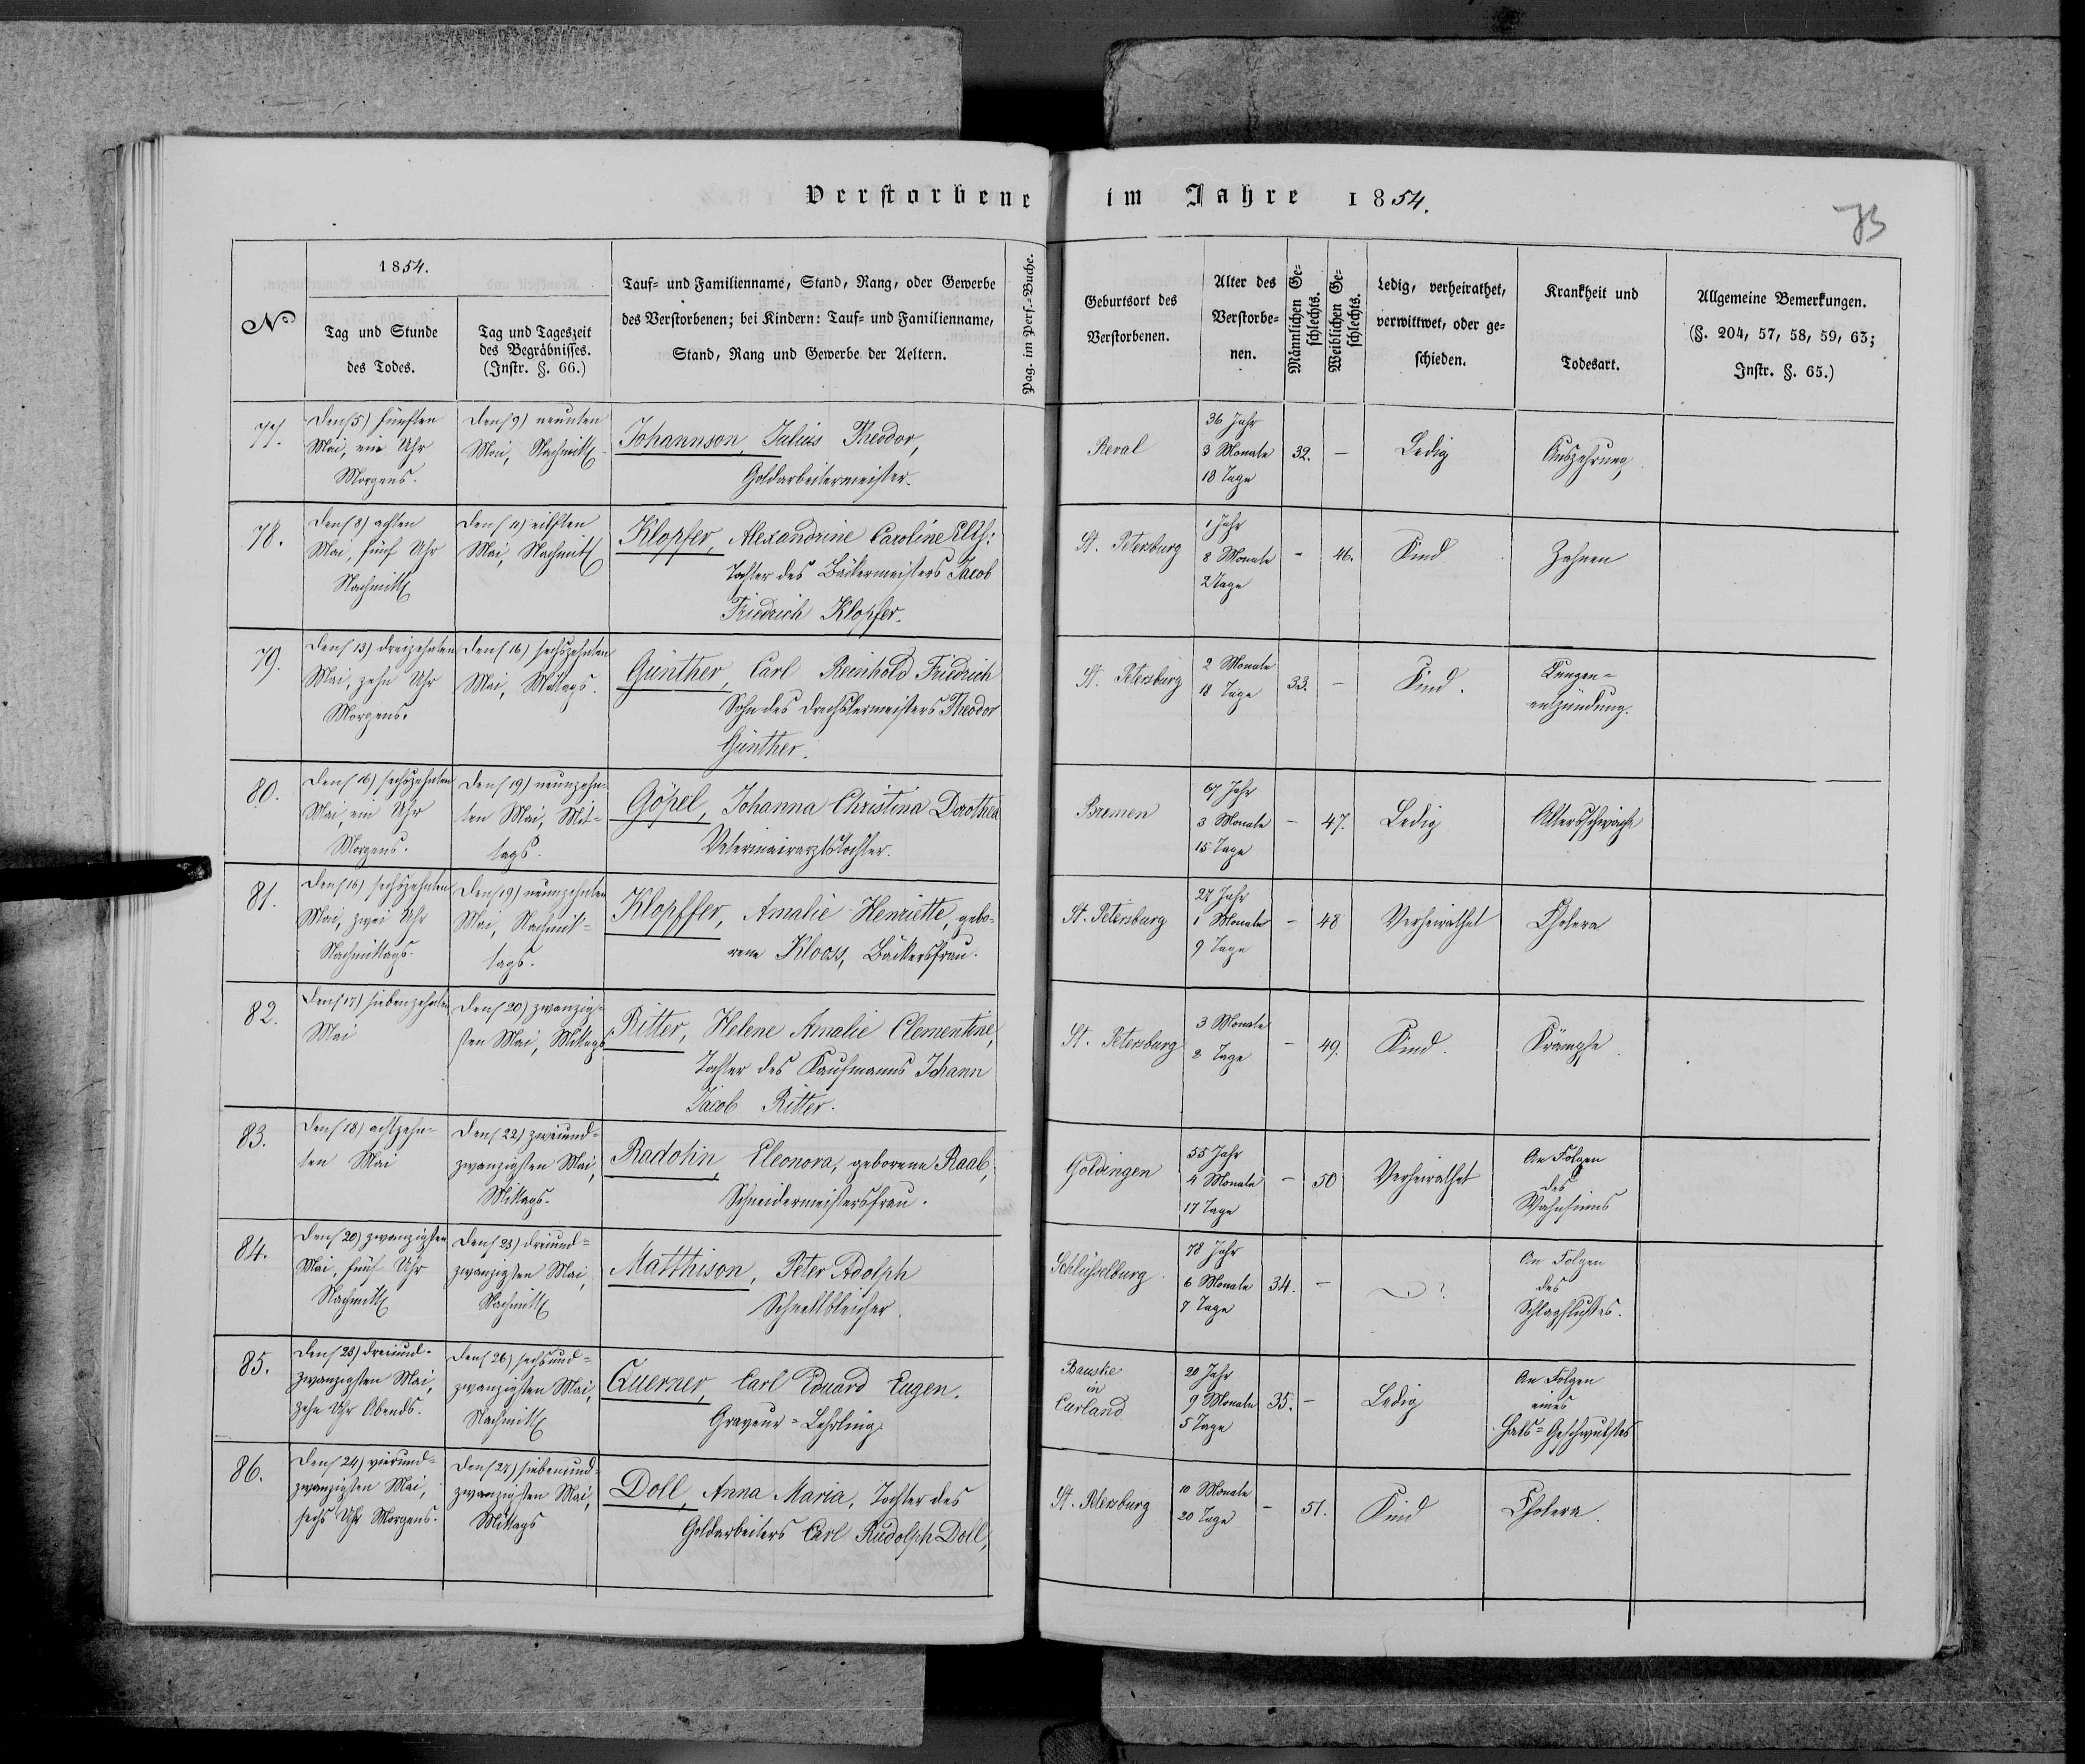 Verstorbene im Jahre 1854.
73
No
1854.
Tag und Stunde
des Todes.
Tag und Tageszeit
des Begräbnisses.
(Instr. §. 66.)
Tauf- und Familienname, Stand, Rang, oder Gewerbe
des Verstorbenen; bei Kindern: Tauf- und Familienname,
Stand, Rang und Gewerbe der Aeltern.
Pag. im Pers.-Buche.
Geburtsort des
Verstorbenen.
Alter des
Verstorbe-
nen.
Männlichen Ge-
schlechts.
Weiblichen Ge-
schlechts.
Ledig, verheirathet,
verwittwet, oder ge-
schieden.
Krankheit und
Todesart.
Allgemeine Bemerkungen.
(§. 204, 57, 58, 59, 63;
Instr. §. 65.)
77.
Den (5) fünften
Mai, ein Uhr
Morgens.
Den (9) neunten
Mai, Nachmitt.
Johannson, Julius Theodor,
Goldarbeitermeister.
Reval
36 Jahr
3 Monate
18 Tage
32.
—
Ledig
Auszehrung
78.
Den (8) achten
Mai, fünf Uhr
Nachmitt.
Den (11) eilften
Mai, Nachmitt.
Klopfer, Alexandrine Caroline Elis:
Tochter des Bäckermeisters Jacob
Friedrich Klopfer.
St. Petersburg
1 Jahr
8 Monate
2 Tage
—
46.
Kind
Zahnen
79.
Den (13) dreizehnten
Mai, zehn Uhr
Morgens.
Den (16) sechszehnten
Mai, Mittags.
Günther, Carl Reinhold Friedrich
Sohn des Drechslermeisters Theodor
Günther.
St. Petersburg
2 Monate
18 Tage
33.
—
Kind.
Lungen-
entzündung.
80.
Den (16) sechszehnten
Mai, ein Uhr
Morgens.
Den (19) neunzehn-
ten Mai, Mit-
tags.
Göpel, Johanna Christina Dorothea
Veterinairarztstochter.
Bremen
67 Jahr
3 Monate
15 Tage
—
47.
Ledig
Altersschwäche
81.
Den (16) sechszehnten
Mai, zwei Uhr
Nachmittags.
Den (19) neunzehnten
Mai, Nachmit-
tags.
Klopffer, Amalie Henriette, gebo-
rene Klooss, Bäckersfrau.
St. Petersburg
27 Jahr
1 Monate
9 Tage
—
48
Verheirathet
Cholera
82.
Den (17) siebenzehnten
Mai
Den (20) zwanzig-
sten Mai, Mittags
Ritter, Helene Amalie Clementine,
Tochter des Kaufmanns Johann
Jacob Ritter.
St. Petersburg
3 Monate
2 Tage
—
49.
Kind.
Krämpfe
83.
Den (18) achtzehn-
ten Mai
Den (22) zweiund-
zwanzigsten Mai,
Mittags.
Radohn, Eleonora, geborene Raab,
Schneidermeistersfrau.
Goldingen
55 Jahr
4 Monate
17 Tage
—
50
Verheirathet
An Folgen
des
Wahnsinns
84.
Den (20) zwanzigsten
Mai, fünf Uhr
Nachmitt.
Den (23) dreiund-
zwanzigsten Mai,
Nachmitt.
Matthison, Peter Adolph
Schnellbleicher.
Schlüsselburg.
78 Jahr
6 Monate
7 Tage
34.
—
?
An Folgen
des
Schlagflusses.
85.
Den (23) dreiund-
zwanzigsten Mai,
zehn Uhr Abends.
Den (26) sechsund-
zwanzigsten Mai,
Nachmitt.
Querner, Carl Eduard Eugen.
Graveur-Lehrling.
Bauske
in
Curland
20 Jahr
9 Monate
5 Tage
35.
—
Ledig
An Folgen
eines
Hals-Geschwulstes
86.
Den (24) vierund-
zwanzigsten Mai,
sechs Uhr Morgens.
Den (27) siebenund-
zwanzigsten Mai,
Mittags
Doll, Anna Maria, Tochter des
Goldarbeiters Carl Rudolph Doll,
St. Petersburg
10 Monate
20 Tage
—
51.
Kind
Cholera.